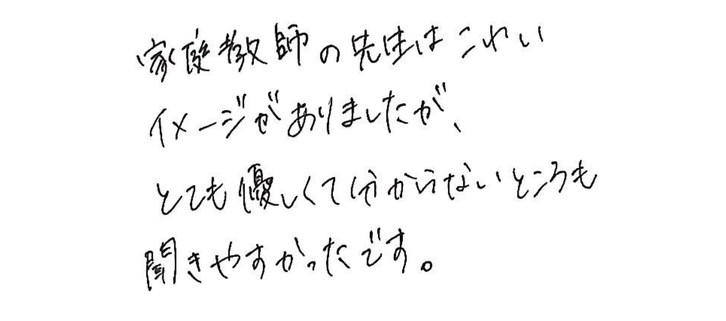 家庭教師の先生はこわい
イメージがありましたが、
とても優しくて分からないところも
聞きやすかったです。